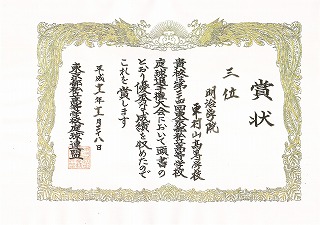 賞状
三位
明治学院
東村山高等学校
貴校は第三回東京都私立高等学校
庭球選手権大会において頭書の
とおり優秀な成績を収めたので
これを賞します
平成十一年十一月二十八日
東京都私立高等学校庭球連盟